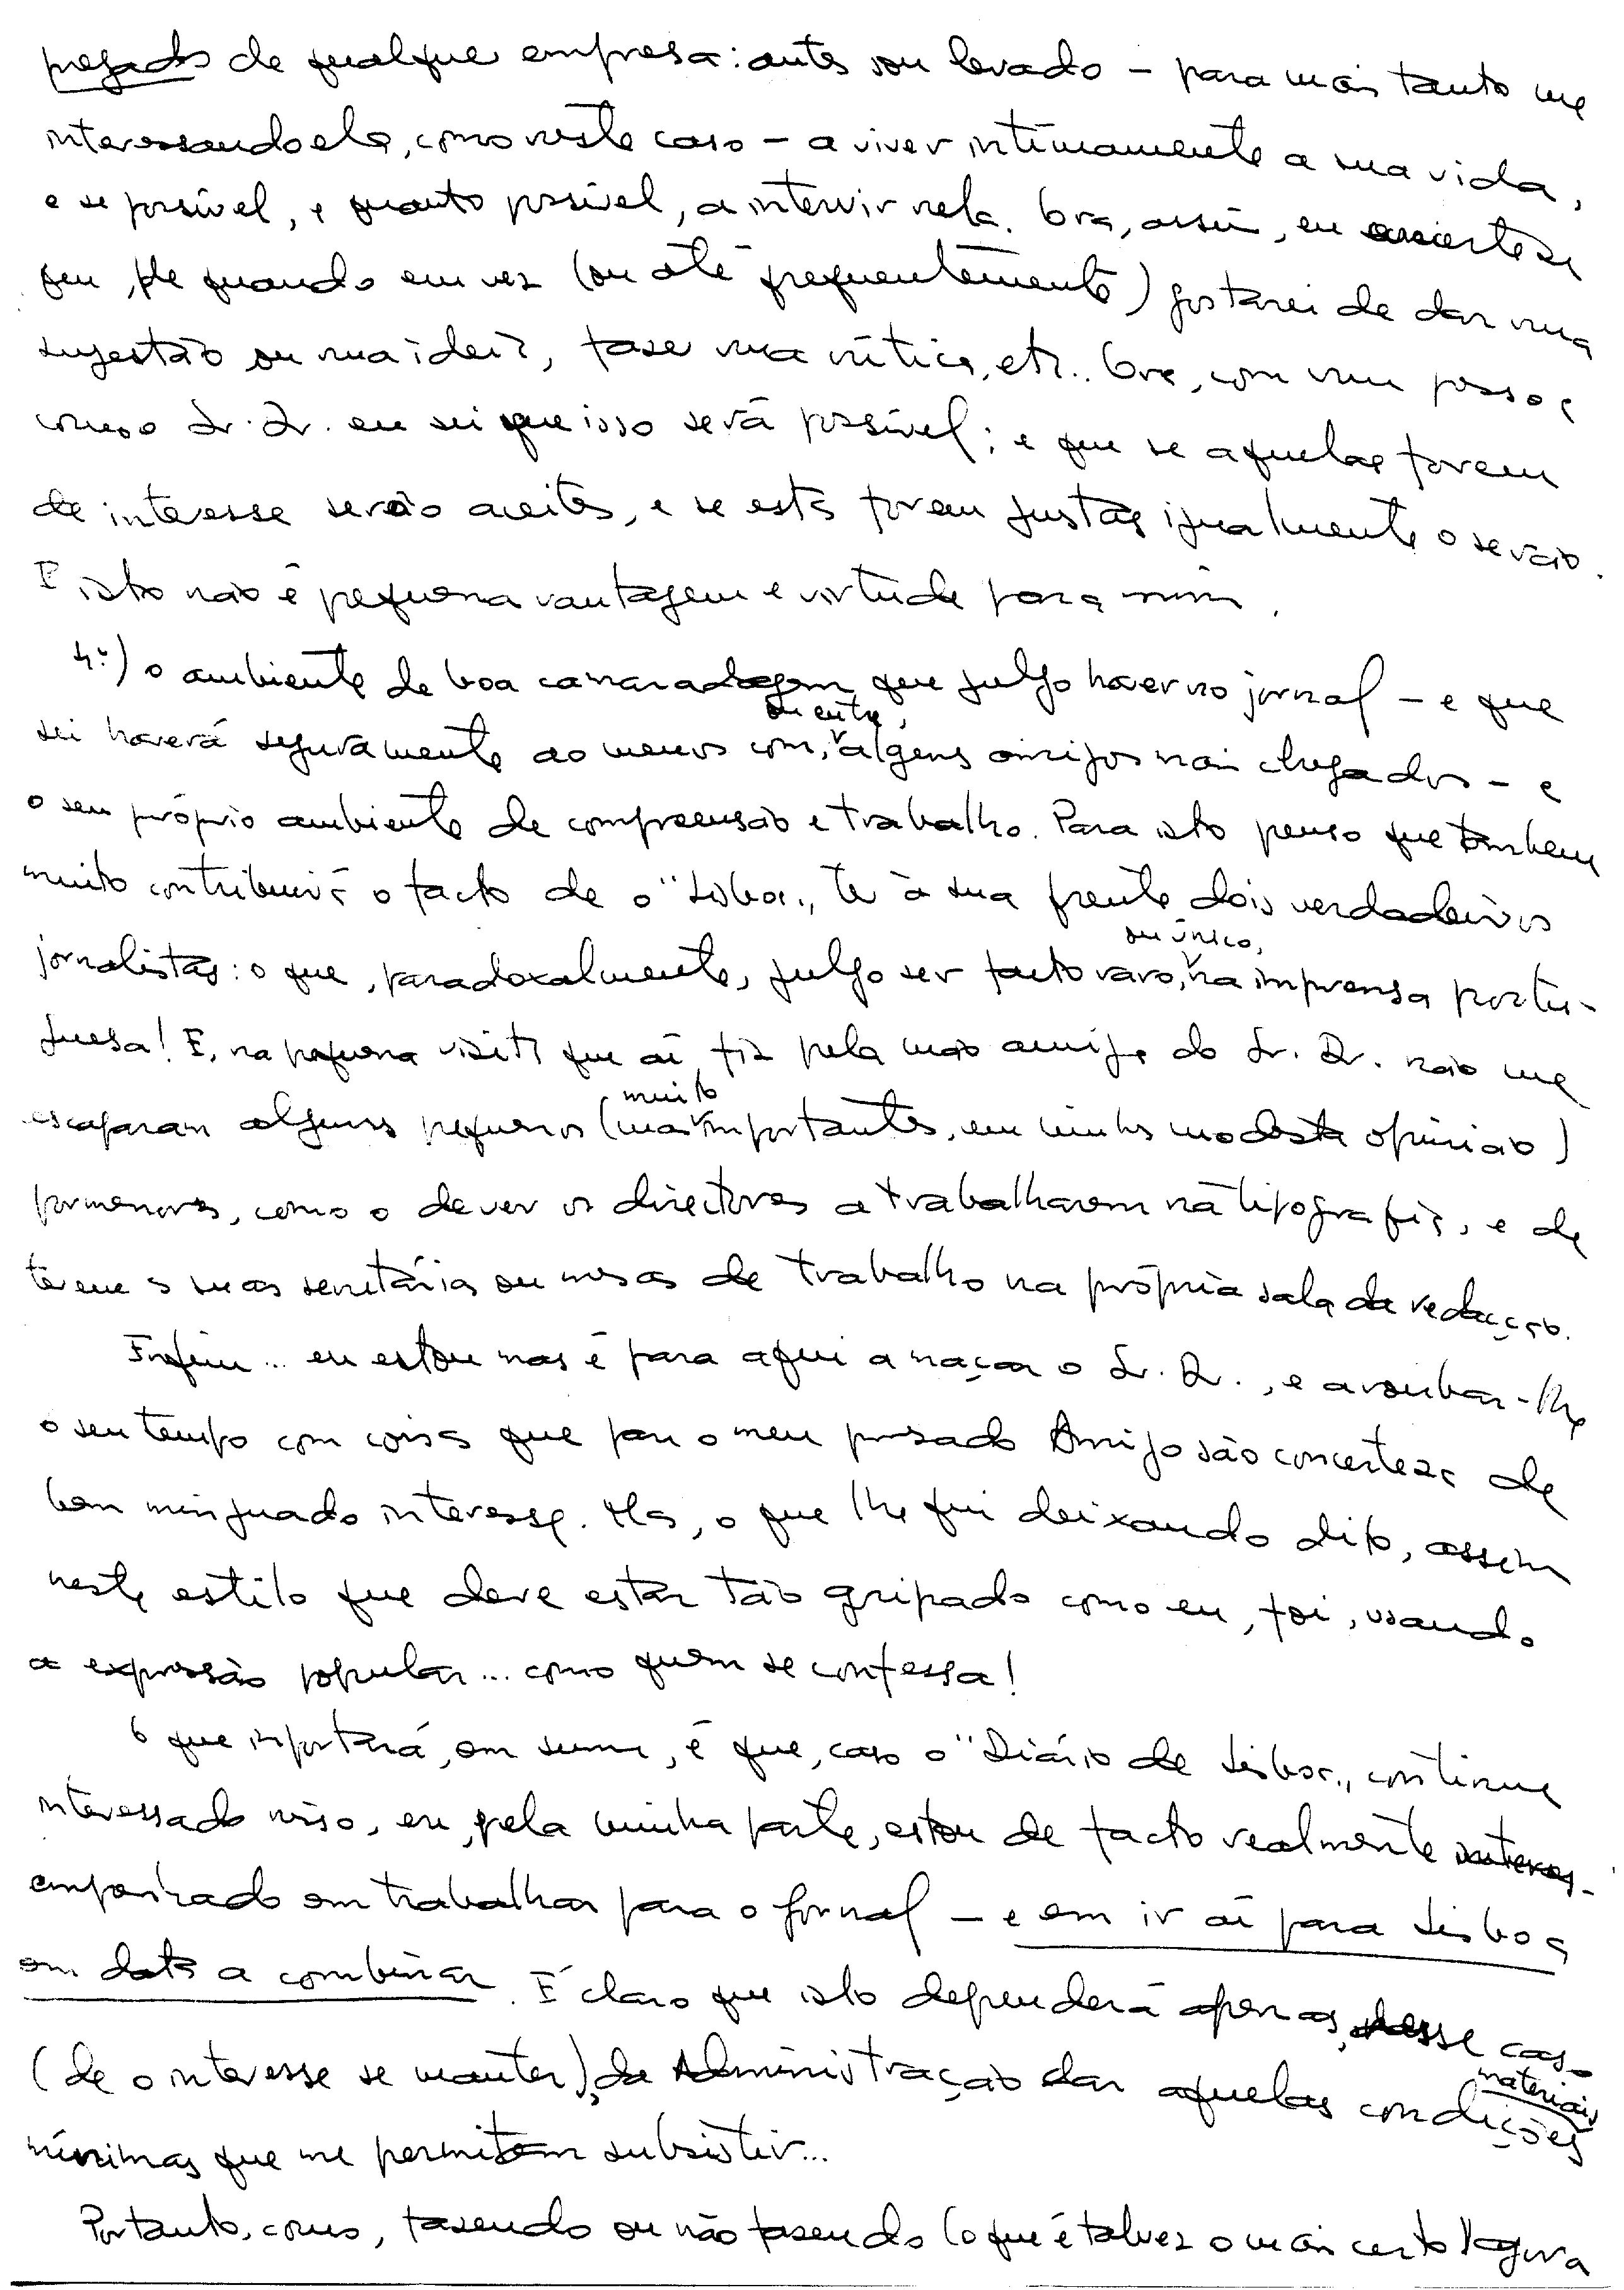 pregado de qualquer empresa: antes sou levado – para mais tanto me
interessando ela, como neste caso – a viver intimamente a sua vida,
e se possível, e quanto possível, a intervir nela. Ora, assim, eu
que, de quando em vez (ou até frequentemente) gostarei de dar uma
sugestão ou uma ideia, fazer uma crítica, etc.. Ora, com uma pessoa
como o Sr. Dr. eu sei que isso será possível; e que se aquelas forem
de interesse serão aceites, e se estas forem justas igualmente o serão.
E isto não é pequena vantagem e virtude para mim.
4º) o ambiente de boa camaradagem que julgo haver no jornal – e que
sei haverá seguramente ao menos com, ou entre, alguns amigos mais chegados – e
o seu próprio ambiente de compreensão e trabalho. Para isto penso que também
muito contribuirá o facto de o "Lisboa" ter à sua frente dois verdadeiros
jornalistas: o que, paradoxalmente, julgo ser facto raro, ou único, na imprensa portu-
guesa! E, na pequena visita que aí fiz pela mão amiga do Sr. Dr. não me
escaparam alguns pequenos (mas muito importantes, em minha modesta opinião)
pormenores, como o de ver os directores a trabalharem na tipografia, e de
terem as suas secretárias ou mesas de trabalho na própria sala da redacção.
Enfim... eu estou mas é para aqui a maçar o Sr. Dr., e a roubar-lhe
o seu tempo com coisas que para o meu prezado Amigo são concerteza de
bem minguado interesse. Mas, o que lhe fui deixando dito, assim
neste estilo que deve estar tão gripado como eu, foi, usando
a expressão popular... como quem se confessa!
O que importará, em suma, é que, caso o "Diário de Lisboa" continue
interessado nisso, eu, pela minha parte, estou de facto realmente interes-
empenhado em trabalhar para o jornal – e em ir aí para Lisboa
em data a combinar. É claro que isto dependerá apenas, nesse caso
(de o interesse se manter), da Administração dar aquelas condições materiais
mínimas que me permitam subsistir...
Portanto, como, fazendo ou não fazendo (o que é talvez o mais certo) agora